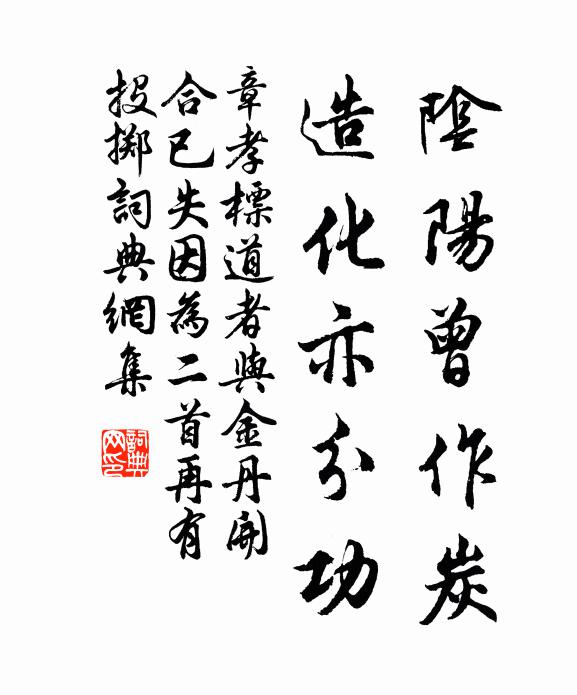 陰陽曾作炭
造化亦分功
章孝標道者與金丹開
合已失因為二首再有
投擲詞典網集
詞典网印